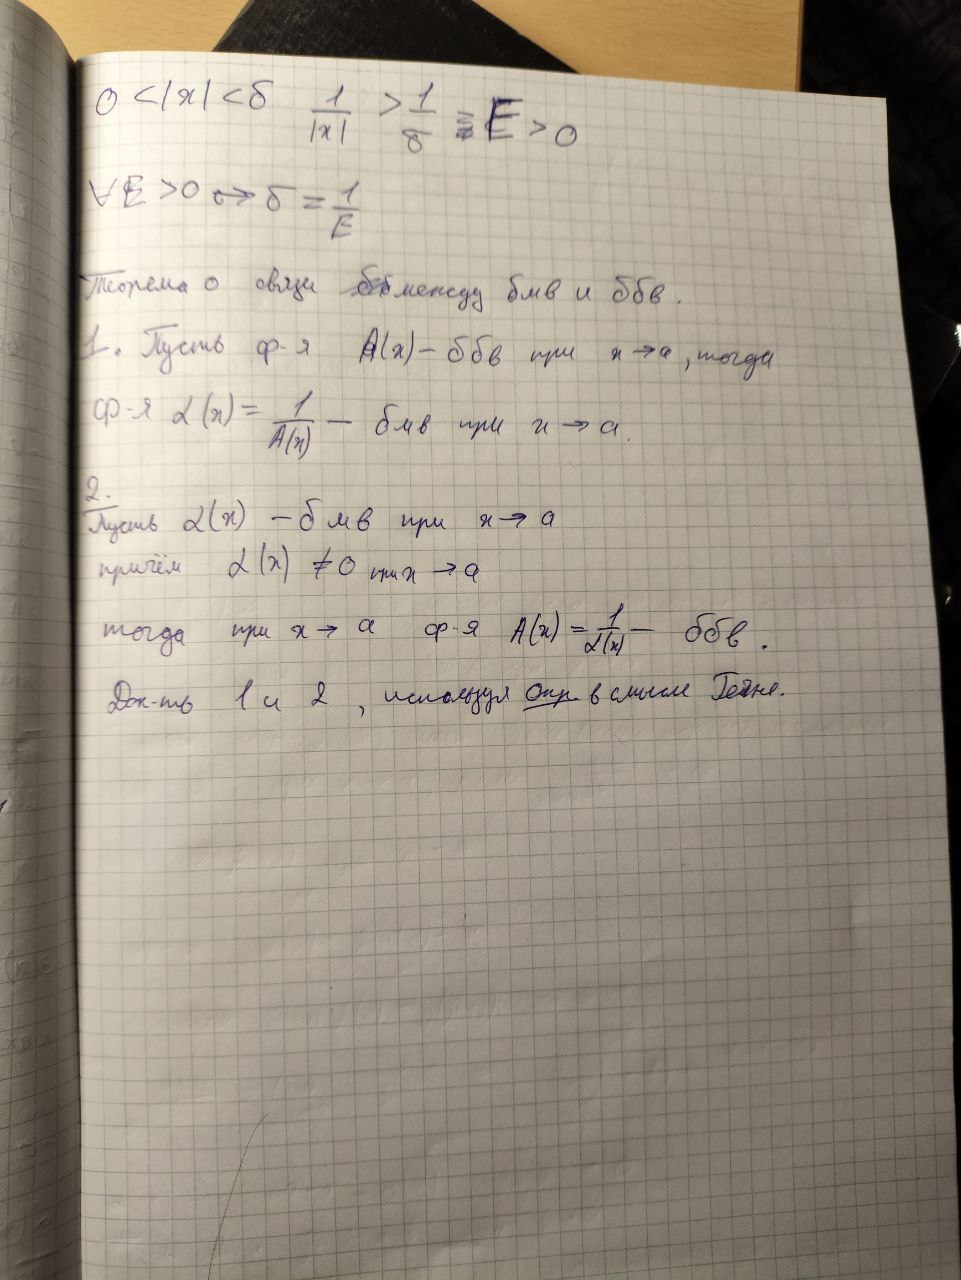 0 < |x| < δ   1/|x| > 1/δ ≡ E > 0
∀E > 0 ↔ δ = 1/E
Теорема о связи между бмв и ббв.
1. Пусть ф-я A(x) – ббв при x → a, тогда
ф-я α(x) = 1/A(x) – бмв при x → a.
2.
Пусть α(x) – бмв при x → a
причём α(x) ≠ 0 при x → a
тогда при x → a ф-я A(x) = 1/α(x) – ббв.
Док-ть 1 и 2, используя опр. в смысле Гейне.